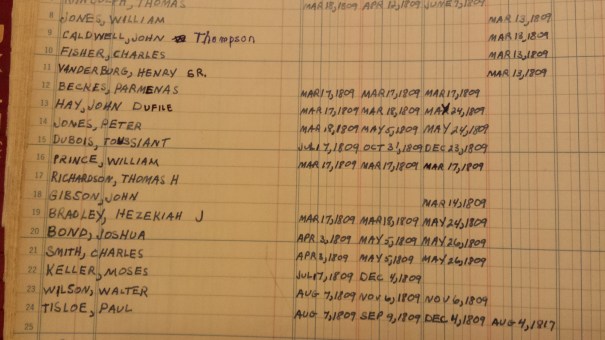 RANDOLPH, THOMAS MAR 18, 1809 APR 12, 1809 JUNE 9, 1809
8 JONES, WILLIAM MAR 13, 1809
9 CALDWELL, JOHN Thompson MAR 13, 1809
10 FISHER, CHARLES MAR 13, 1809
11 VANDERBURG, HENRY SR. MAR 13, 1809
12 BECKES, PARMENAS MAR 17, 1809 MAR 17, 1809 MAR 17, 1809
13 HAY, JOHN DUFILE MAR 17, 1809 MAR 18, 1809 MAY 24, 1809
14 JONES, PETER MAR 18, 1809 MAY 5, 1809 MAY 24, 1809
15 DUBOIS, TOUSSIANT JUL 17, 1809 OCT 31, 1809 DEC 23, 1809
16 PRINCE, WILLIAM MAR 17, 1809 MAR 17, 1809 MAR 17, 1809
17 RICHARDSON, THOMAS H
18 GIBSON, JOHN MAR 14, 1809
19 BRADLEY, HEZEKIAH J MAR 17, 1809 MAR 18, 1809 MAY 24, 1809
20 BOND, JOSHUA APR 3, 1809 MAY 5, 1809 MAY 26, 1809
21 SMITH, CHARLES APR 3, 1809 MAY 5, 1809 MAY 26, 1809
22 KELLER, MOSES JUL 17, 1809 DEC 4, 1809
23 WILSON, WALTER AUG 7, 1809 NOV 6, 1809 NOV 6, 1809
24 TISLOE, PAUL AUG 7, 1809 SEP 9, 1809 DEC 4, 1809 AUG 4, 1817
25